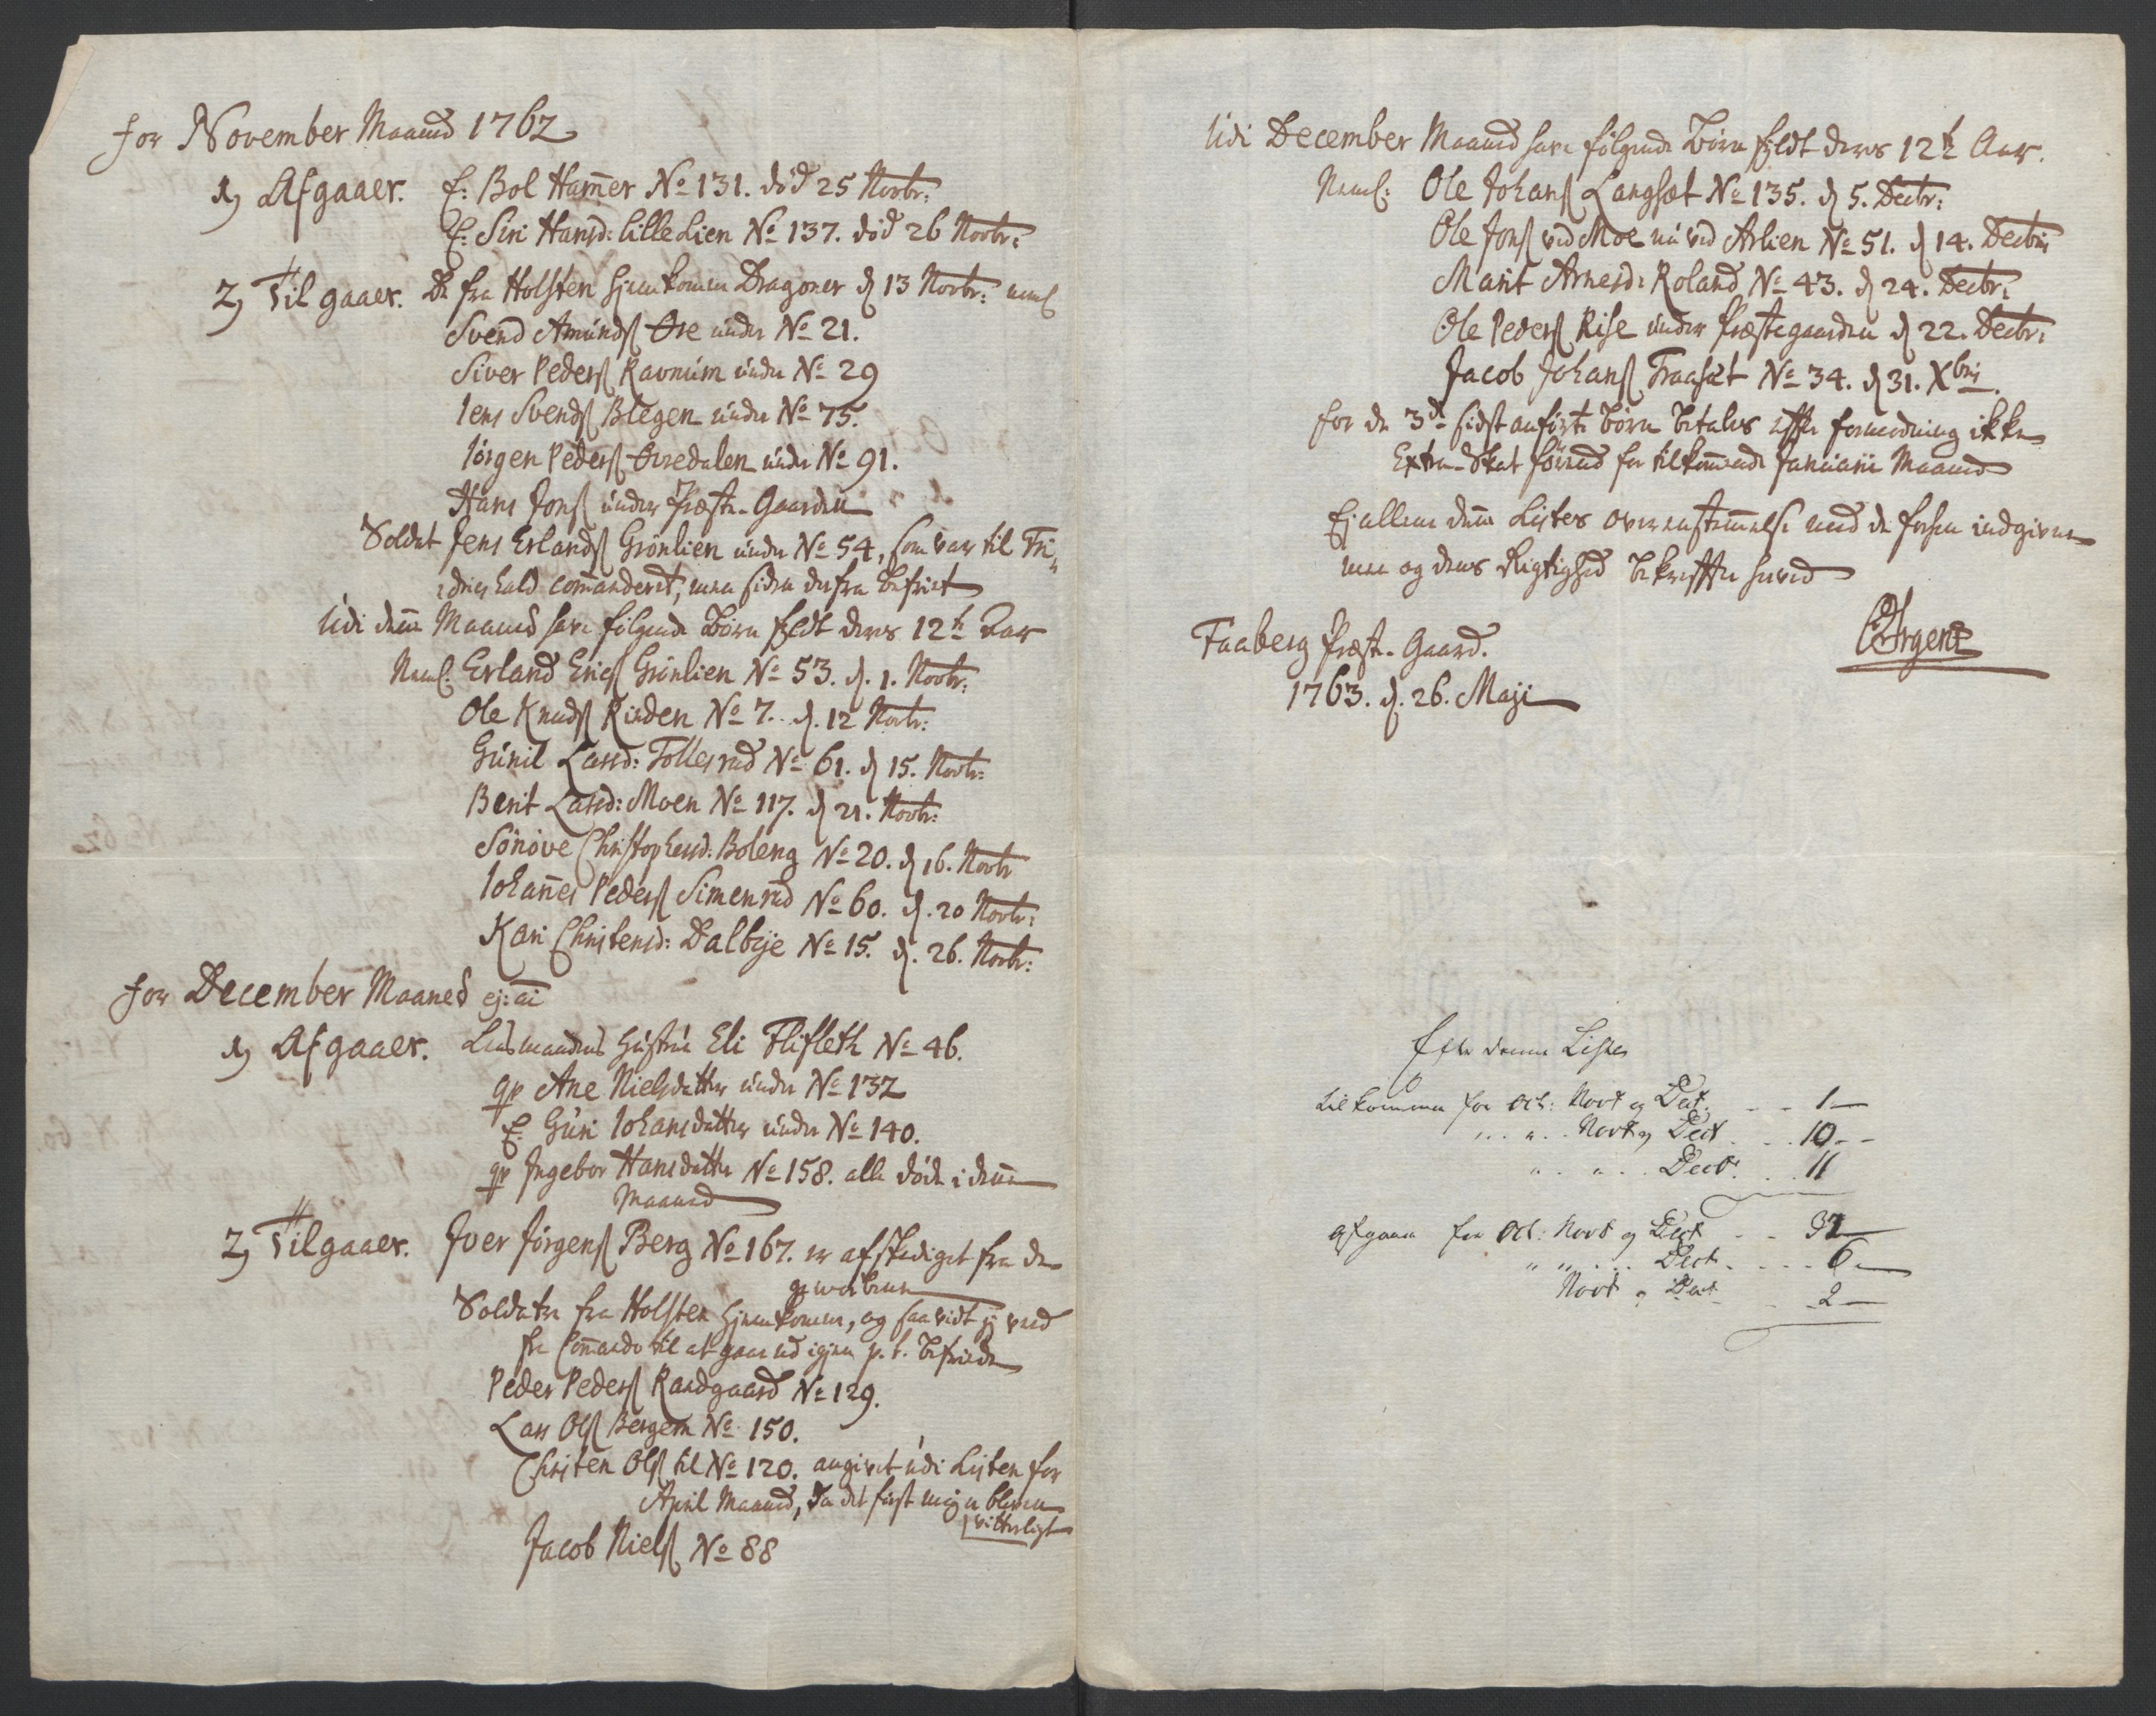 for November Maaned 1762
1, Afgaaer. E: Bol Ham̅er No 131. död 25 Novbr:
E: Siri Hansd: lille Lien No 137. död 26 Novbr:
2, Til gaaer. De fra Holsten hjemkomne Dragoner d 13 Novbr: neml
Svend Amunds Ore under No 21.
Siver Peders Ravnum under No 29
Jens Svends Blegen under No 75.
Jörgen Peders Overdalen under No 91.
Hans Jons under Præste-Gaarden
Soldat Jens Erlands Grönlien under No 54, som var til Fri-
drichshald com̅anderet, men siden derfra befriet
Udi den̅e Maaned have fölgende Börn fyldt deres 12te Aar
Neml. Erland Erics Grönlien No 53. d. 1. Novbr:
Ole Knuds Rinden No 7. d. 12 Novbr:
Gunil Larsd: Tollesrud No 61. d 15. Novbr:
Berit Larsd: Moen No 117. d 21. Novbr:
Sönove Christophersd: Boleng No 20. d 16. Novbr
Johan̅es Peders Simenrud No 60. d. 20 Novbr:
Kari Christensd: Dalbye No 15. d. 26. Novbr:
for December Maaned ej: ai
1, Afgaaer. Lensmandens Hustrue Eli Flifleth No 46.
qp Ane Nielsdatter under No 132
E: Guri Johansdatter under No 140.
qp Ingebor Hansdatter No 158. alle döde i den̅e
Maaned
2, Tilgaaer. Iver Jörgens Berg No 167. er afskediget fra de
gevorbene
Soldater fra Holsten hjemkomne, og saavidt jeg veed
fra Com̅ando til at gaae ud igjen p. t. befriede
Peder Peders Randgaard No 129.
Lars Ols Bergem No 150.
Christen Ols til No 120. angivet udi Listen for
April Maaned, da det først mig er bleven
vitterligt
Jacob Niels No 88
Udi December Maaned have fölgende Börn fyldt deres 12te Aar.
Neml: Ole Johans Langsæt No 135. d 5. Decbr:
Ole Jons ved Moe nu ved Arlien No 51. d 14. Decbris
Marit Arnesd: Roland No 43. d 24. Decbr:
Ole Peders Rise under Præstegaarden d 22. Decbr:
Jacob Johans Traaset No 34. d 31. Xbris.
for de 3de sidst anförte Börn betales efter formodning ikke
Extra-Skat förend for tilkom̅ende Januarii Maaned
Ej allene den̅e Listes overenstem̅else med de forhen indgivne
men og dens Rigtighed bekræfter herved
Faaberg Præste-Gaard.
1763. d. 26. Maji
Efter denne Liste
tilkommer for Oct: Novb og Decb. - - 1 -
" " Novb og Decb . . 10 - -
" " . . Decbr. . . 11
afgaar for Oct: Novb og Decb - - 32 -
" " . . Decb. - - - 6 -
Novb og Decb - 2 -